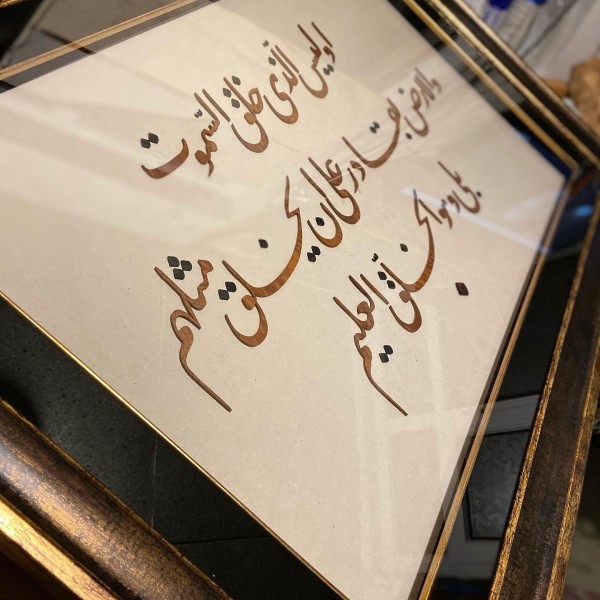 اوليس الّذى خلق السّموت
والارض بقادر على ان يخلق مثلهم
بلى وهو الخلّق العليم